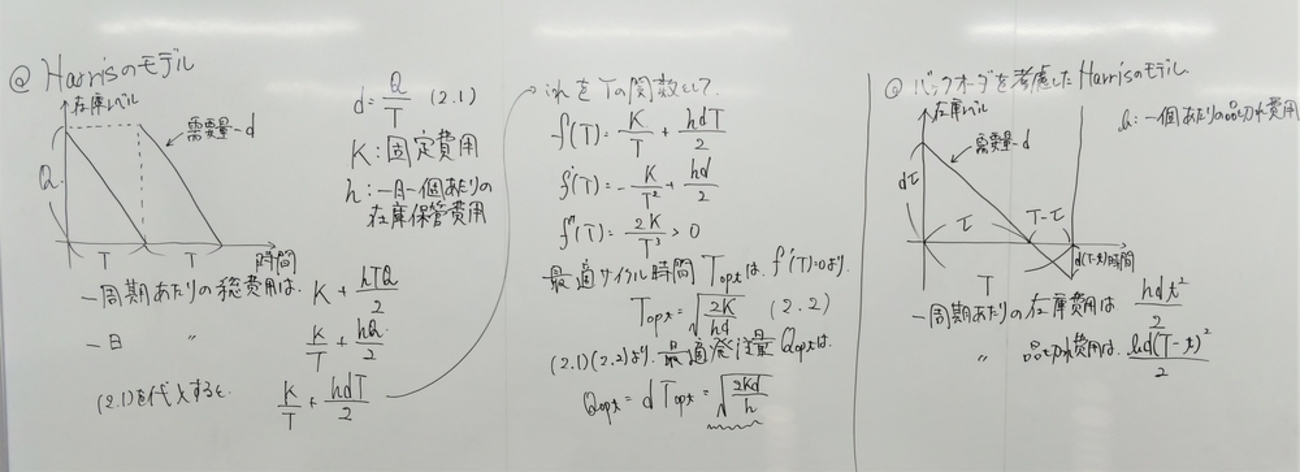 @ Harrisのモデル
在庫レベル
需要量-d
Q
T T 時間
d = Q/T (2.1)
K:固定費用
h:一日一個あたりの
在庫保管費用
一周期あたりの総費用は、K + hTQ/2
一日 〃 K/T + hQ/2
(2.1)を代入すると、 K/T + hdT/2
これをTの関数として、
f(T) = K/T + hdT/2
f'(T) = -K/T² + hd/2
f''(T) = 2K/T³ > 0
最適サイクル時間 Toptは、f'(T)=0より、
Topt = √(2K/hd) (2.2)
(2.1)(2.2)より、最適発注量Qoptは、
Qopt = d Topt = √(2Kd/h)
@ バックオーダを考慮したHarrisのモデル
在庫レベル
b:一個あたりの品切れ費用
需要量-d
dτ
τ T-τ
d(T-t) 時間
T
一周期あたりの在庫費用は hdt²/2
〃 品切れ費用は、bd(T-t)²/2